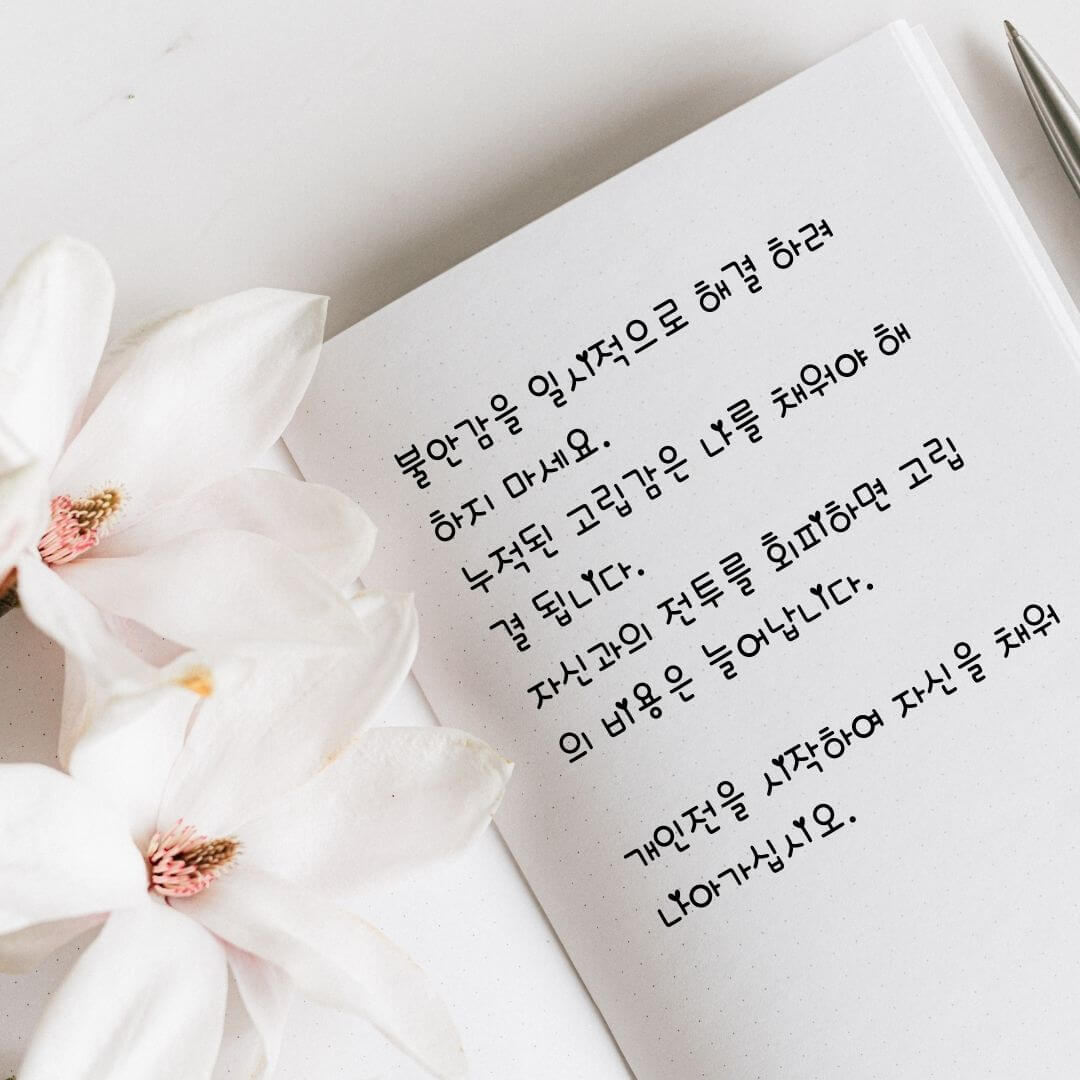 불안감을 일시적으로 해결 하려
하지 마세요.
누적된 고립감은 나를 채워야 해
결 됩니다.
자신과의 전투를 회피하면 고립
의 비용은 늘어납니다.
개인전을 시작하여 자신을 채워
나아가십시오.